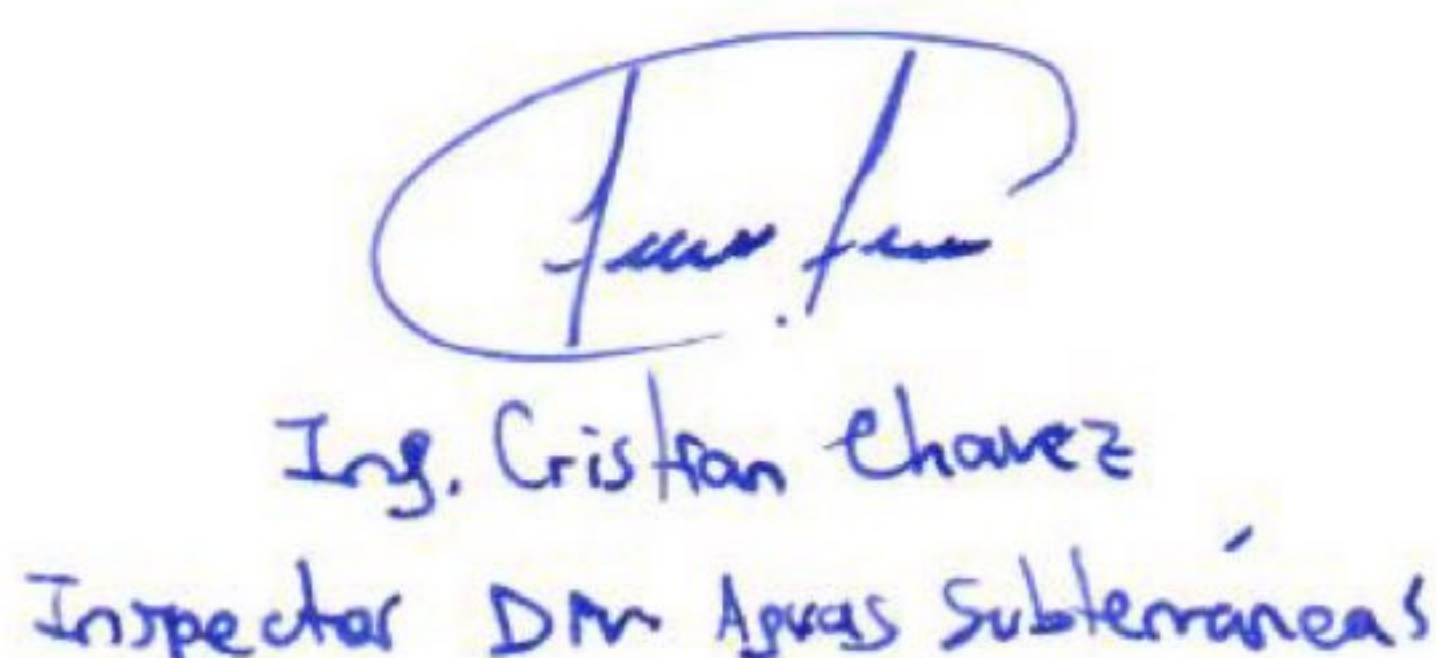 Ing. Cristian Chavez
Inspector Aguas Subterráneas